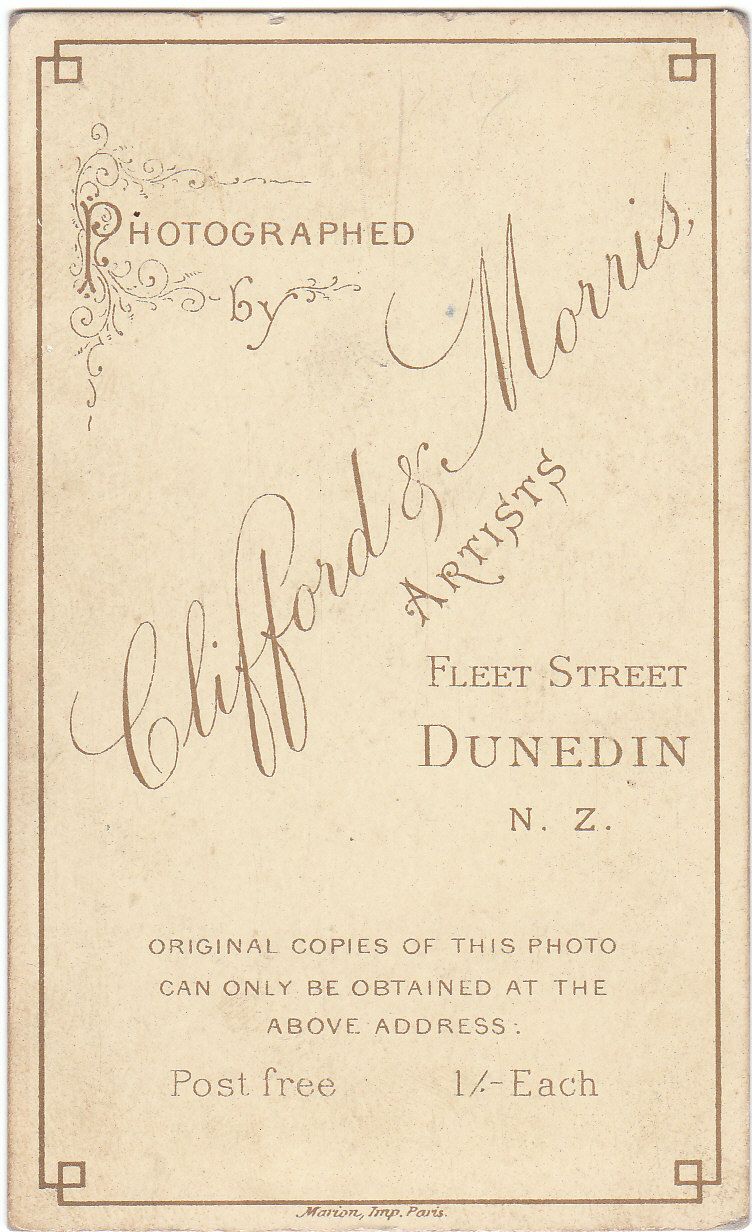 PHOTOGRAPHED
by
Clifford & Morris,
ARTISTS
FLEET STREET
DUNEDIN
N. Z.
ORIGINAL COPIES OF THIS PHOTO
CAN ONLY BE OBTAINED AT THE
ABOVE ADDRESS:
Post free 1/- Each
Marion, Imp. Paris.